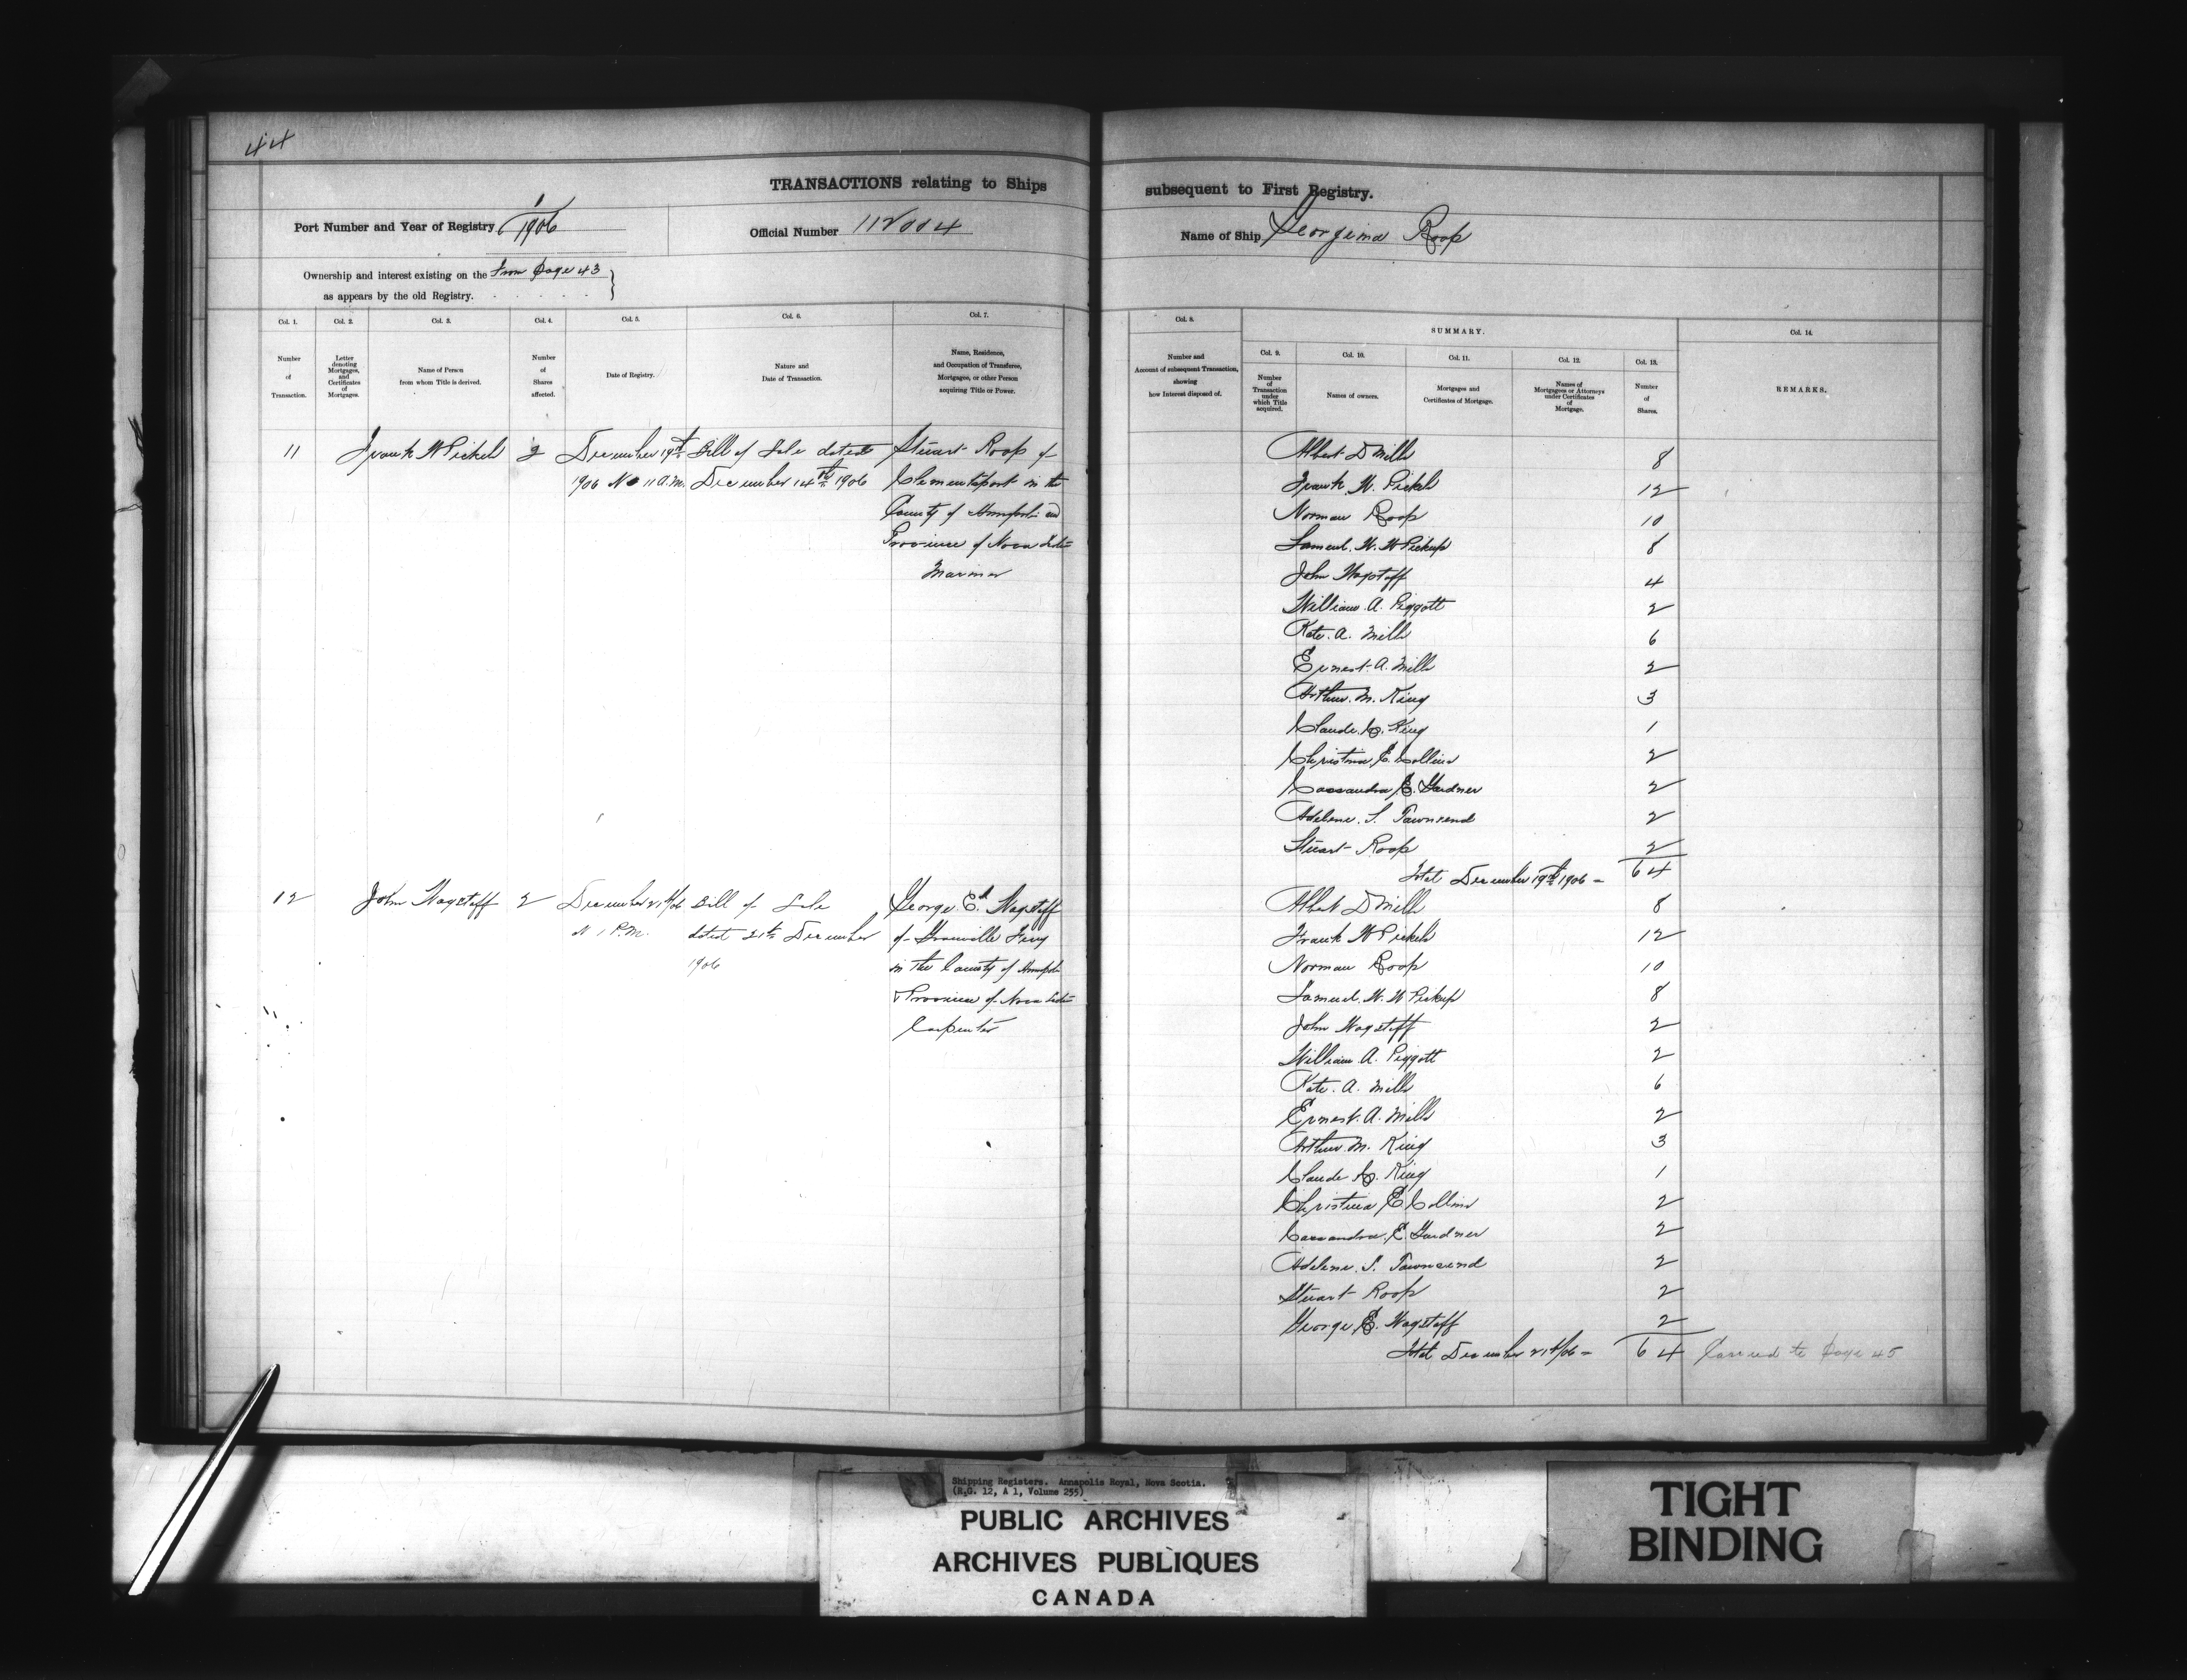 44
TRANSACTIONS relating to Ships subsequent to First Registry.
Port Number and Year of Registry 1/1906 Official Number 112004 Name of Ship Georgina Roop
Ownership and interest existing on the From Page 43
as appears by the old Registry.
Col. 1. Col. 2. Col. 3. Col. 4. Col. 5. Col. 6. Col. 7. Col. 8. SUMMARY. Col. 14.
Col. 9. Col. 10. Col. 11. Col. 12. Col. 13.
Number of Transaction.
Letter denoting Mortgages, and Certificates of Mortgages.
Name of Person from whom Title is derived.
Number of Shares affected.
Date of Registry.
Nature and Date of Transaction.
Name, Residence, and Occupation of Transferee, Mortgagee, or other Person acquiring Title or Power.
Number and Account of subsequent Transaction, showing how Interest disposed of.
Number of Transaction under which Title acquired.
Names of owners.
Mortgages and Certificates of Mortgage.
Names of Mortgagees or Attorneys under Certificates of Mortgage.
Number of Shares.
REMARKS.
11 Frank W Pickels 2 December 19th Bill of Sale dated Stuart Roop of
1906 11 A.M. December 14th 1906 Clementsport in the
County of Annapolis and
Province of Nova Scotia
Mariner
Albert D Mills 8
Frank W. Pickels 12
Norman Roop 10
Samuel W. W Pickup 8
John Wagstaff 4
William A. Piggott 2
Kate A. Mills 6
Ernest A. Mills 2
Arthur M. King 3
Claude C. King 1
Christina E. Collins 2
Cassandra E. Gardner 2
Adelene S. Townsend 2
Stuart Roop 2
Total December 19th 1906 - 64
12 John Wagstaff 2 December 21st/06 Bill of Sale George Ed Wagstaff
1 P.M. dated 21st December of Granville Ferry
1906 in the County of Annapolis
& Province of Nova Scotia
Carpenter
Albert D Mills 8
Frank W Pickels 12
Norman Roop 10
Samuel W. W Pickup 8
John Wagstaff 2
William A. Piggott 2
Kate A. Mills 6
Ernest A. Mills 2
Arthur M. King 3
Claude C. King 1
Christina E Collins 2
Cassandra E Gardner 2
Adelene S. Townsend 2
Stuart Roop 2
George E. Wagstaff 2
Total December 21st/06 - 64 Carried to Page 45
Shipping Registers. Annapolis Royal, Nova Scotia.
(R.G. 12, A 1, Volume 255)
PUBLIC ARCHIVES
ARCHIVES PUBLIQUES
CANADA
TIGHT
BINDING